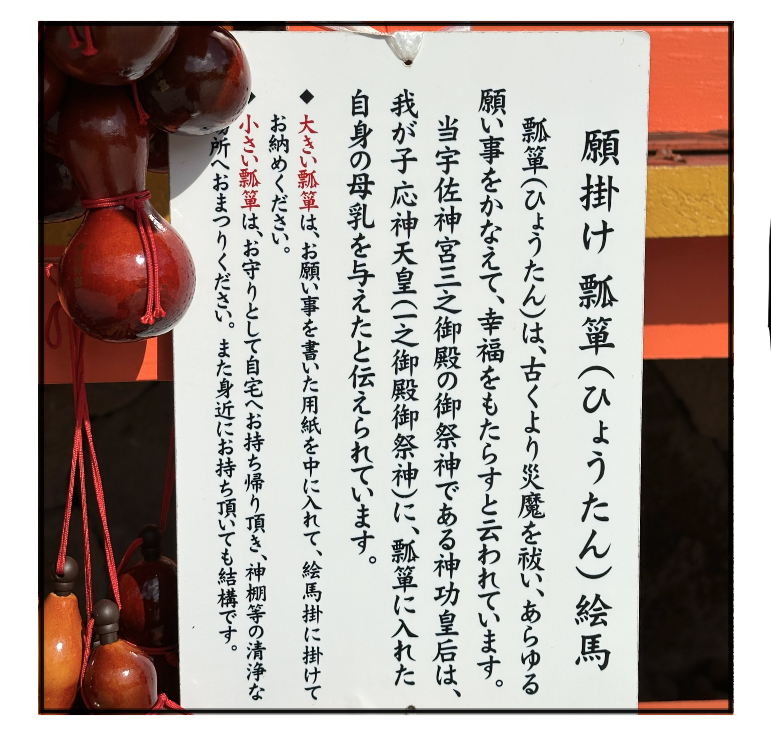 願掛け 瓢箪(ひょうたん)絵馬
瓢箪(ひょうたん)は、古くより災魔を祓い、あらゆる
願い事をかなえて、幸福をもたらすと云われています。
当宇佐神宮三之御殿の御祭神である神功皇后は、
我が子応神天皇(一之御殿御祭神)に、瓢箪に入れた
自身の母乳を与えたと伝えられています。
◆大きい瓢箪は、お願い事を書いた用紙を中に入れて、絵馬掛に掛けて
お納めください。
◆小さい瓢箪は、お守りとして自宅へお持ち帰り頂き、神棚等の清浄な
場所へおまつりください。また身近にお持ち頂いても結構です。